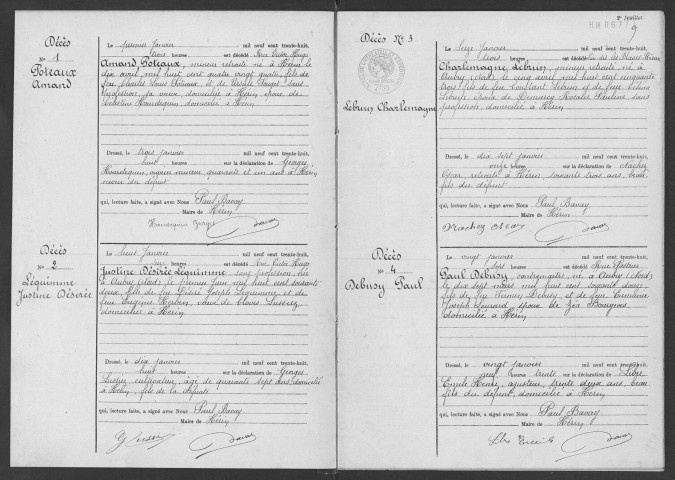 Décès
N° 1
Poteaux
Amand
Le premier janvier mil neuf cent trente-huit,
trois heures est décédé Rue Victor Hugo
Amand Poteaux, mineur retraité né à Hérin le
dix avril mil huit cent quatre vingt quatre fils de
feu Charles Louis Poteaux et de Ursule sans
profession sa veuve domiciliée à Hérin époux de
Célestine Haudiquin domiciliée à Hérin
Dressé, le trois janvier mil neuf cent trente-huit,
huit heures sur la déclaration de Georges
Haudiquin, quarante et un ans à Hérin
du défunt
qui, lecture faite, a signé avec Nous Paul Bavay
Maire de Hérin
Haudiquin Georges Bavay
Décès
N° 2
Léquimme
Justine Désirée
Le janvier mil neuf cent trente-huit,
heures est décédé Rue Victor Hugo
Justine Désirée Léquimme sans profession née
à Aubry (Nord) le premier juin mil huit cent soixante
deux, fille de feu Désiré Joseph Léquimme et de
feue Eugénie Herbin, veuve de Clovis Lussiez
domiciliée à Hérin
Dressé, le dix janvier mil neuf cent trente-huit,
huit heures sur la déclaration de Georges
Lussiez cultivateur, âgé de quarante sept ans domicilié
à Hérin, fils de la défunte
qui, lecture faite, a signé avec Nous Paul Bavay
Maire de Hérin
G Lussiez Bavay
2e feuillet
9
Décès N° 3
Lebrun Charlemagne
Le seize janvier mil neuf cent trente-huit,
trois heures est décédé
Charlemagne Lebrun, mineur retraité né à
Aubry (Nord) le cinq avril mil huit cent cinquante
trois fils de feu Constant Lebrun et de feue
Lebrun époux de Rosalie Pauline sans
profession, domiciliée à Hérin
Dressé, le dix sept janvier mil neuf cent trente-huit,
onze heures sur la déclaration de Nachez
Oscar, retraité à Hérin, soixante trois ans, beau
fils du défunt
qui, lecture faite, a signé avec Nous Paul Bavay
Maire de Hérin
Nachez Oscar Bavay
Décès
N° 4
Debusy Paul
Le vingt janvier mil neuf cent trente-huit,
sept heures est décédé Rue Pasteur
Paul Debusy, né à Aubry (Nord)
le dix sept mars mil huit cent soixante douze
fils de feu Debusy et de feue
Joseph époux de Zéa Bourgeois,
domiciliée à Hérin
Dressé, le vingt janvier mil neuf cent trente-huit,
neuf heures trente sur la déclaration de
Emile Henri, ajusteur, trente deux ans, beau
fils du défunt, domicilié à Hérin
qui, lecture faite, a signé avec Nous Paul Bavay
Maire de Hérin
Bavay